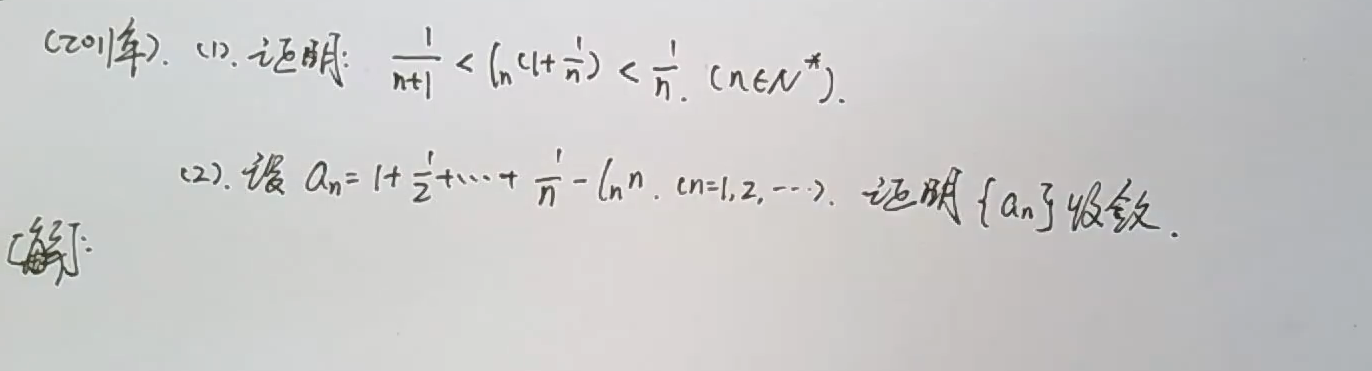 (2011年). (1). 证明: \frac{1}{n+1} < ln(1+\frac{1}{n}) < \frac{1}{n}. (n∈N*).
(2). 设 a_n = 1+\frac{1}{2}+⋯+\frac{1}{n} - ln n. (n=1,2,⋯). 证明{a_n}收敛.
[解]: